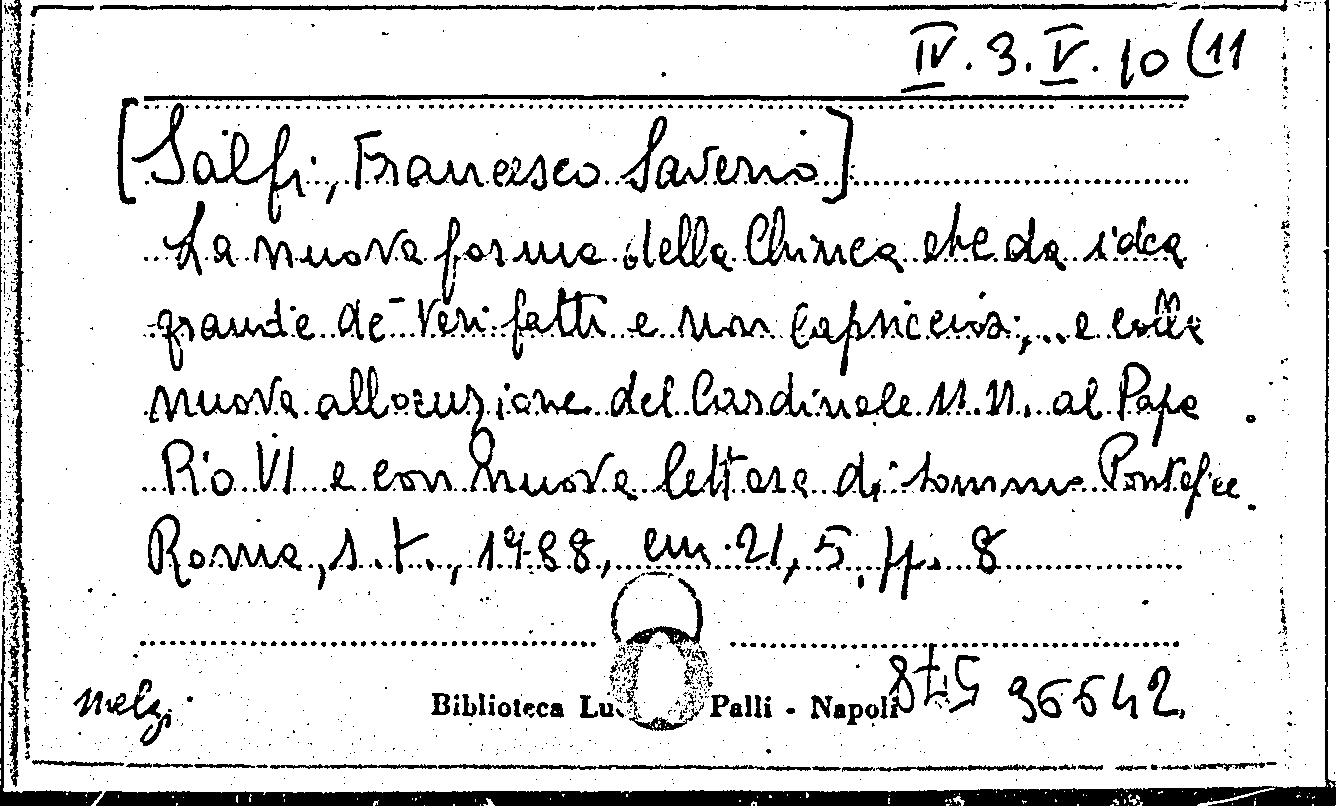 IV.3.V.10(11
[Salfi, Francesco Saverio]
La nuova forma della Chinea che da idea
grande de' veri fatti e non capricciosi, .. e colla
nuova allocuzione del Cardinale N.N. al Papa
Pio VI e con nuova lettera di sommo Pontefice.
Roma, s.t., 1788, cm. 21,5, pp. 8
Melzi
Biblioteca Lu Palli - Napoli
96642